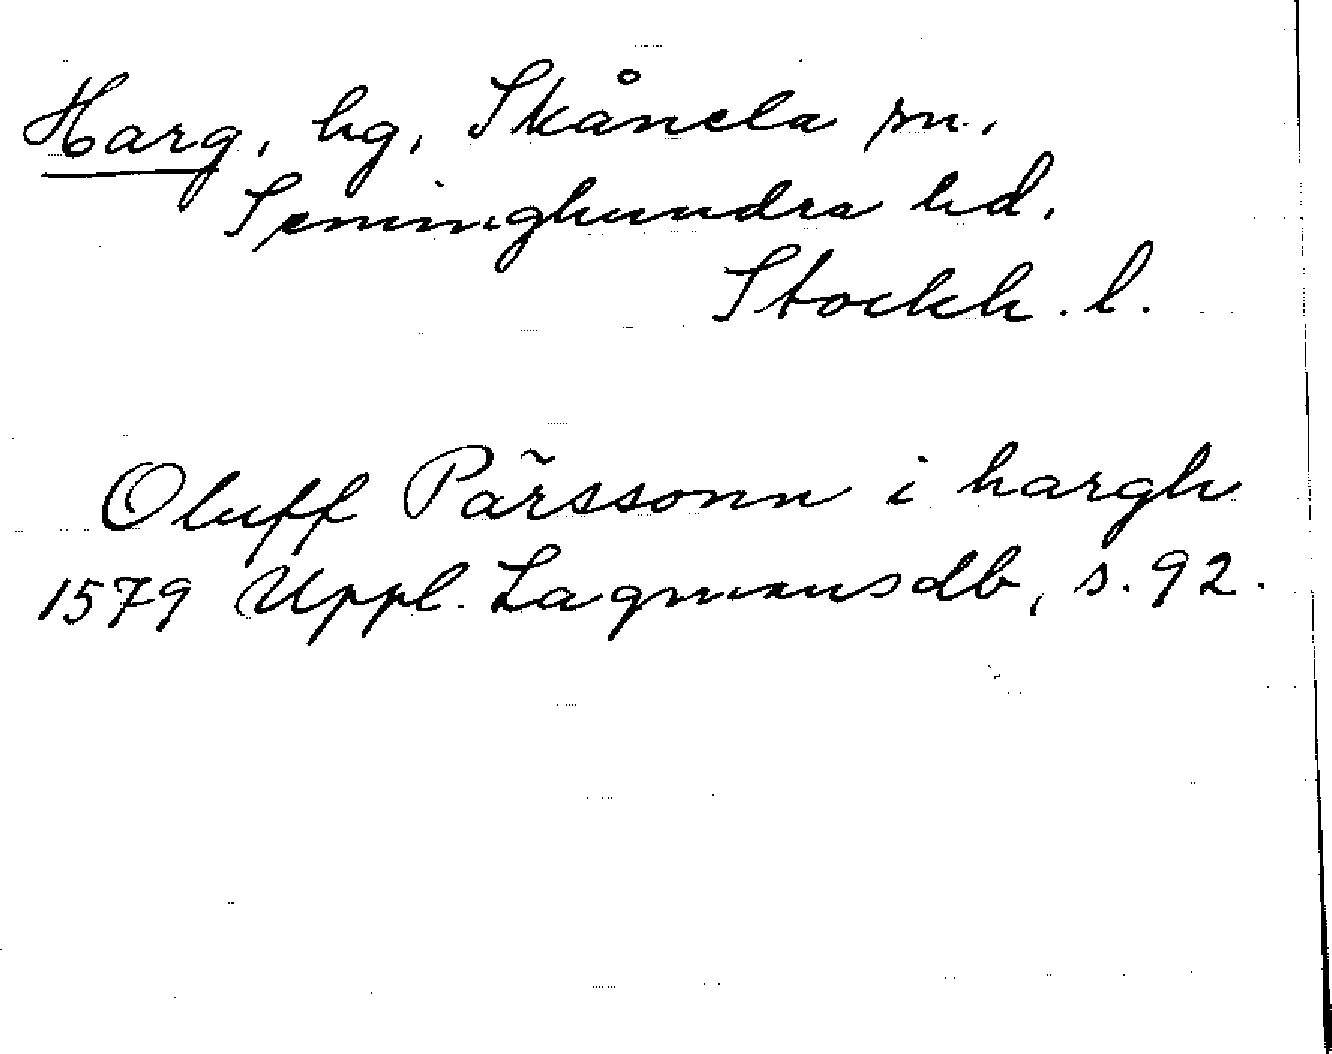 Harg, hg, Skånela sn.,
Seminghundra hd.
Stockh. l.
Oluff Pãrssonn i hargh
1579 Uppl. Lagmansdb, s. 92.